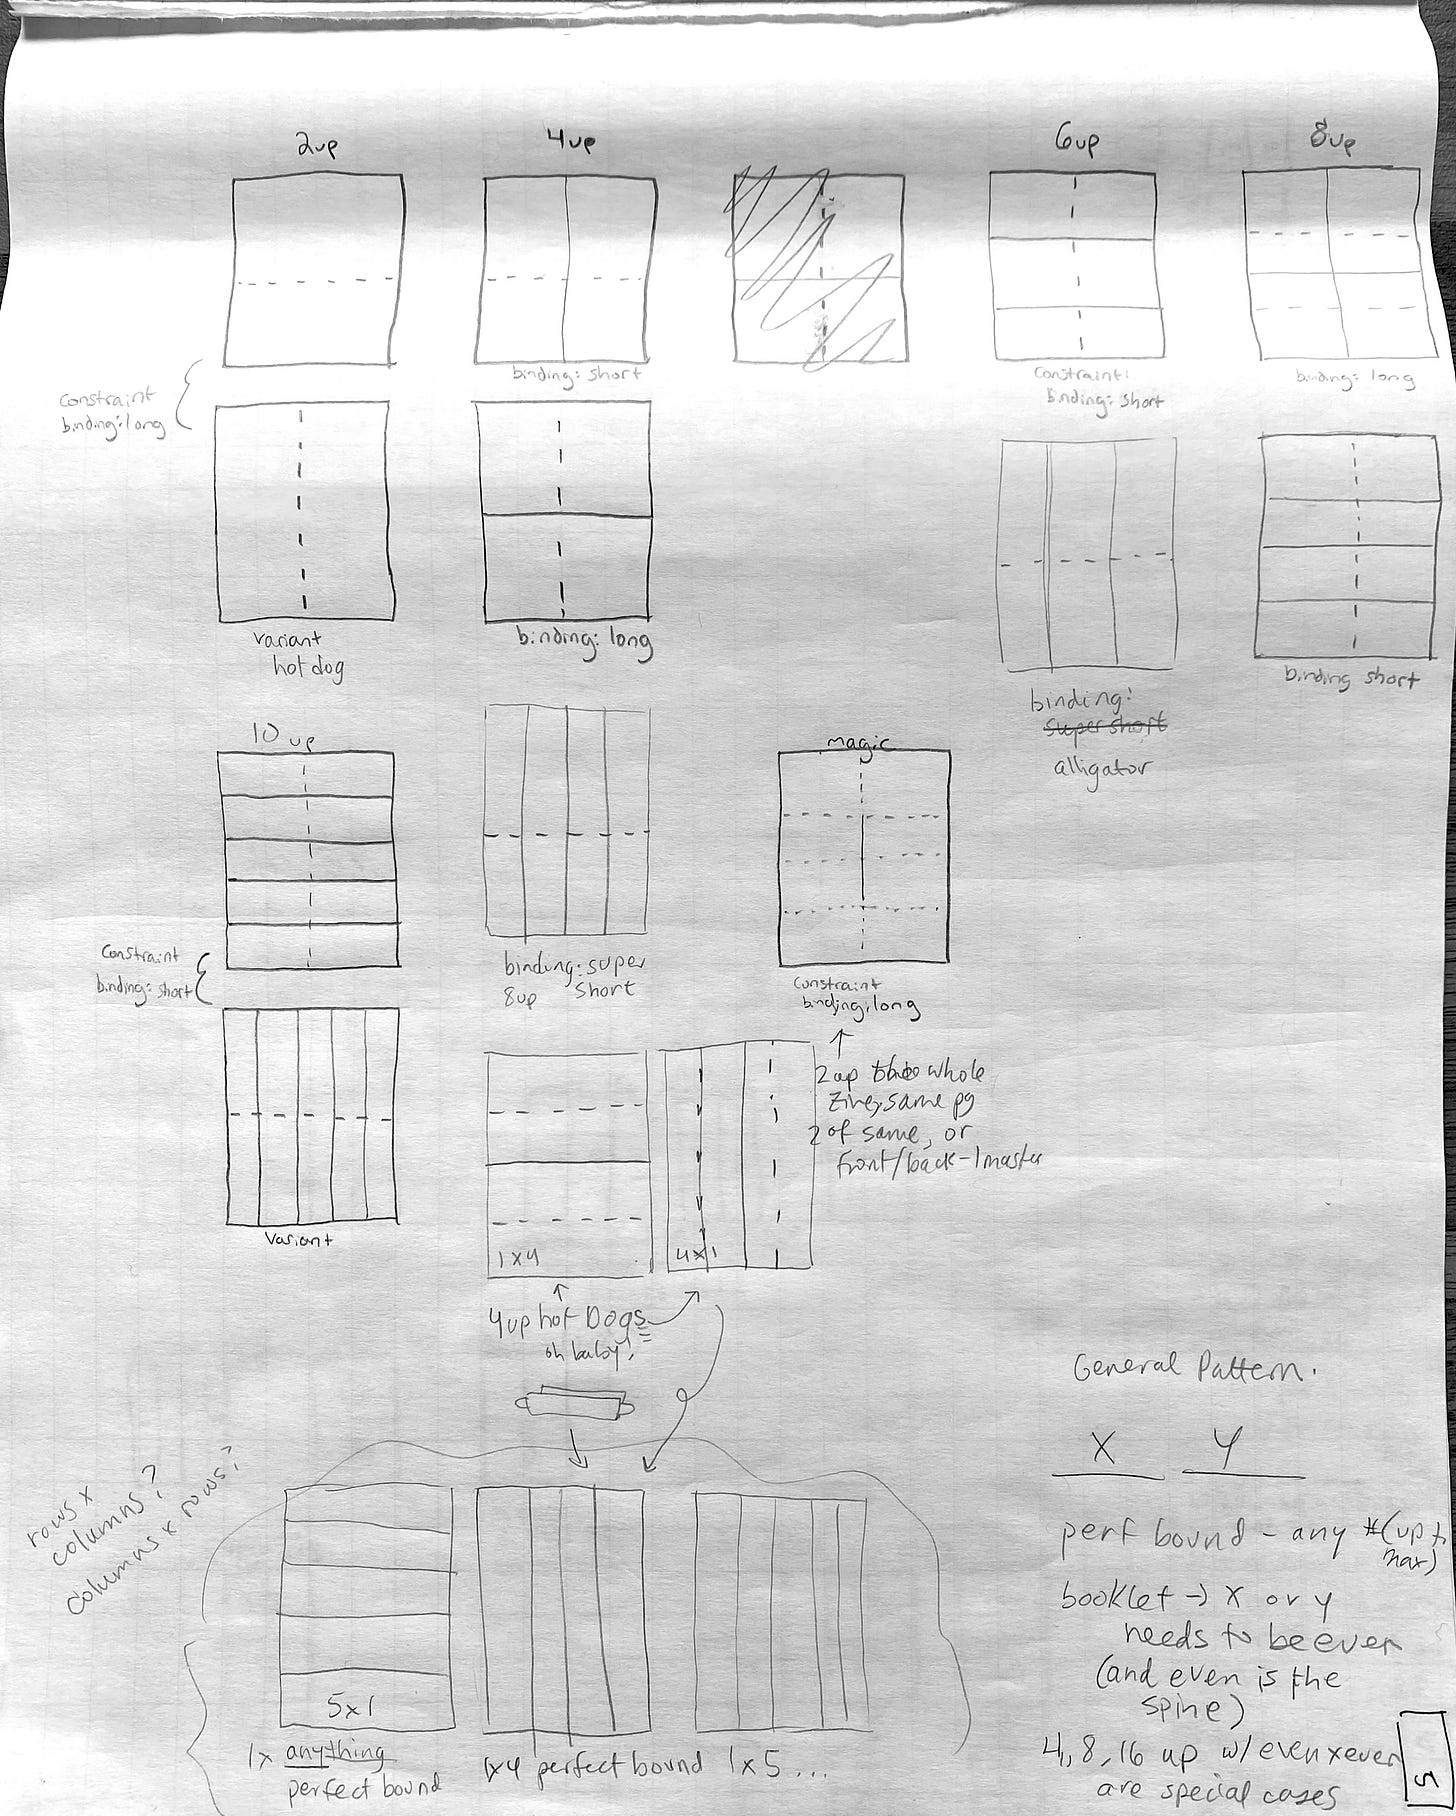 2up
4up
6up
8up
constraint
binding: long
binding: short
constraint:
binding: short
binding: long
variant
hot dog
binding: long
binding:
super short
alligator
binding short
10 up
magic
constraint
binding: short
binding: super
8up short
constraint
binding: long
variant
2up whole
zine, same pg
2 of same, or
front/back - 1 master
1x4
4x1
4up hot Dogs
oh baby!
General Pattern.
X Y
rows x
columns?
columns x rows?
perf bound - any #(up to
max)
booklet → X or Y
needs to be even
(and even is the
spine)
4, 8, 16 up w/ even x even
are special cases
5x1
1x anything
perfect bound
1x4 perfect bound 1x5 ...
5